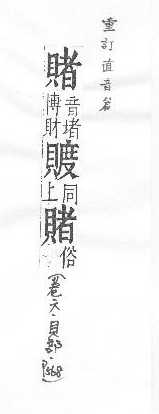 重訂直音篇
賭音堵博財
同上
賭俗
(卷六·貝部·